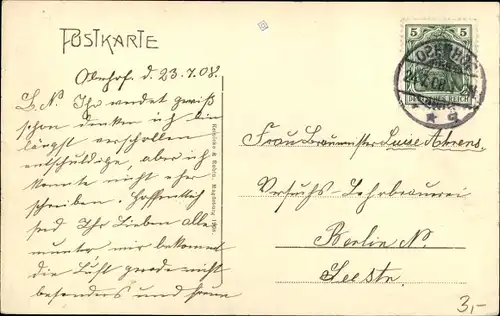 POSTKARTE
Oberhof. d. 23.7.08.
L. N. Ihr werdet gewiß
schon denken ich bin
längst verschollen
entschuldige, aber ich
konnte nicht eher
schreiben. Hoffentlich
seid Ihr Lieben alle
munter mir bekommt
die Luft gerade nicht
besonders und freue
Reinicke & Rubin, Magdeburg 1908.
5 5
DEUTSCHES REICH
OBERHOF
24.7.08
Frau Braumeister Luise Ahrens
Versuchs-Lehrbrauerei
Berlin N.
Seestr.
3,-